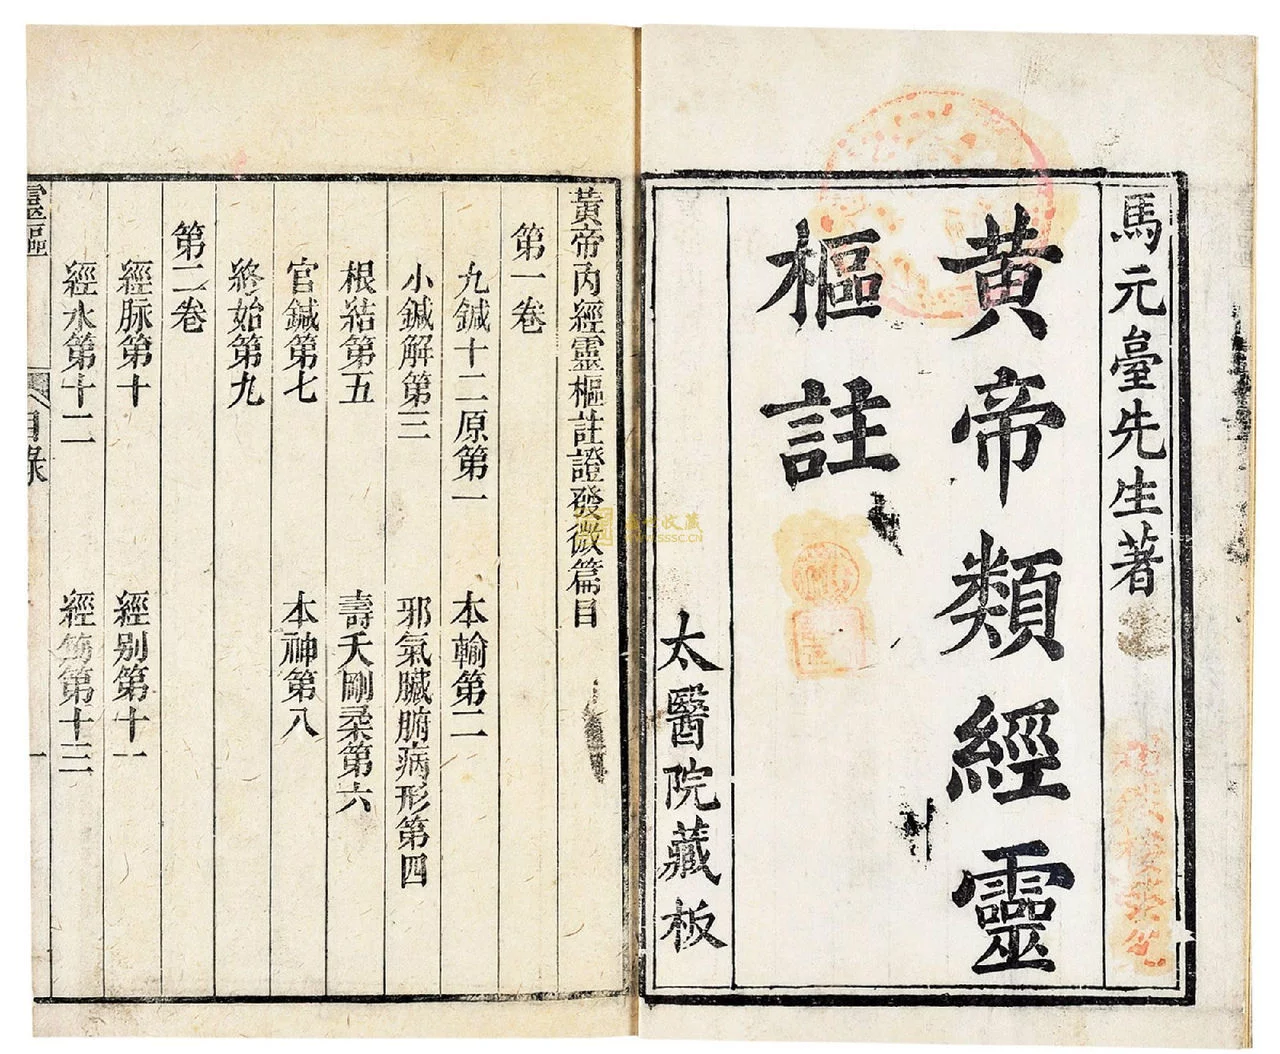 馬元臺先生著
黃帝類經靈
樞註
太醫院藏板
黃帝內經靈樞註證發微篇目
第一卷
九鍼十二原第一 本輸第二
小鍼解第三 邪氣臟腑病形第四
根結第五 壽夭剛柔第六
官鍼第七 本神第八
終始第九
第二卷
經脉第十 經別第十一
經水第十二 經筋第十三
靈樞 目錄 一
收藏